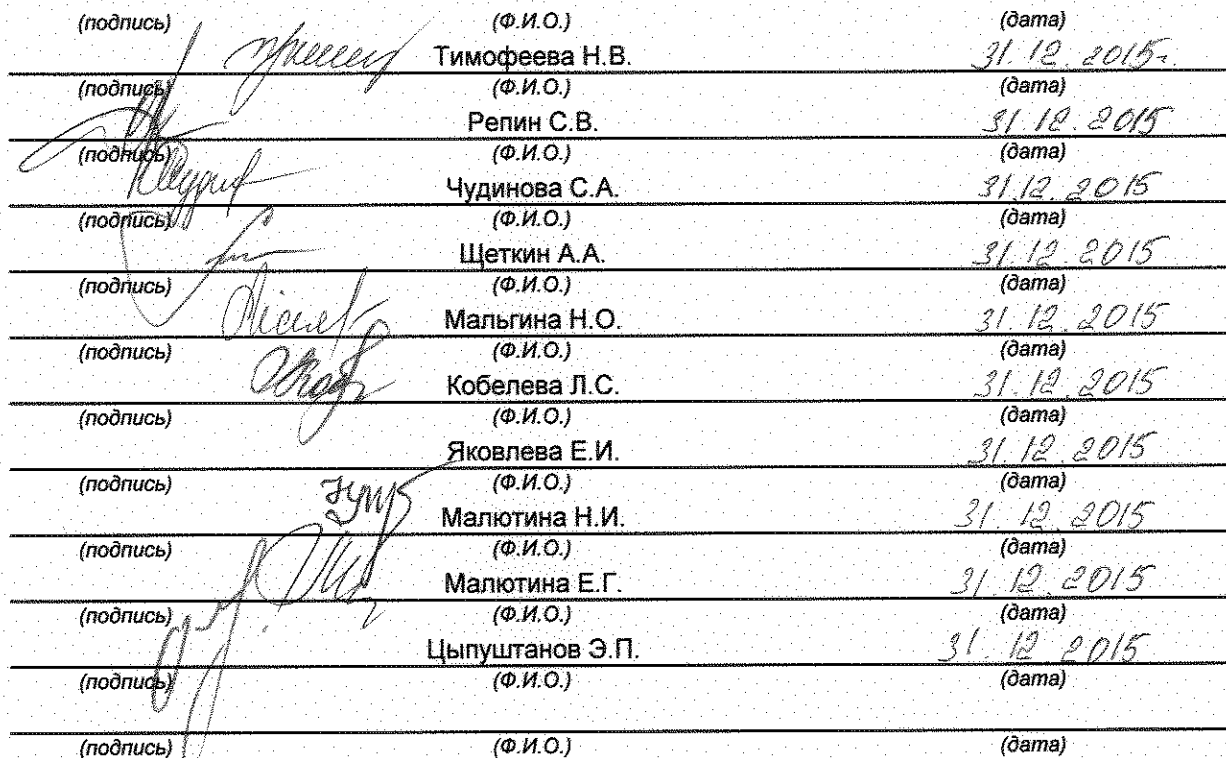 (подпись) (Ф.И.О.) (дата)
Тимофеева Н.В. 31.12.2015г.
(подпись) (Ф.И.О.) (дата)
Репин С.В. 31.12.2015
(подпись) (Ф.И.О.) (дата)
Чудинова С.А. 31.12.2015
(подпись) (Ф.И.О.) (дата)
Щеткин А.А. 31.12.2015
(подпись) (Ф.И.О.) (дата)
Мальгина Н.О. 31.12.2015
(подпись) (Ф.И.О.) (дата)
Кобелева Л.С. 31.12.2015
(подпись) (Ф.И.О.) (дата)
Яковлева Е.И. 31.12.2015
(подпись) (Ф.И.О.) (дата)
Малютина Н.И. 31.12.2015
(подпись) (Ф.И.О.) (дата)
Малютина Е.Г. 31.12.2015
(подпись) (Ф.И.О.) (дата)
Цыпуштанов Э.П. 31.12.2015
(подпись) (Ф.И.О.) (дата)
(подпись) (Ф.И.О.) (дата)